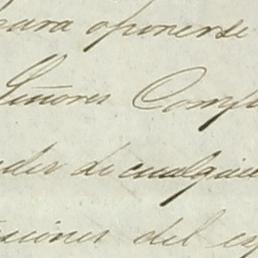 para oponerse
Señores Comp
der de cualquie
siones del es